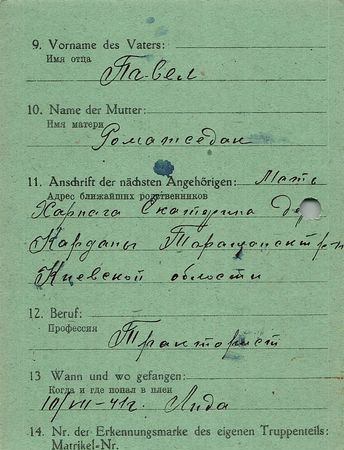 9. Vorname des Vaters:
Имя отца
Павел
10. Name der Mutter:
Имя матери
11. Anschrift der nächsten Angehörigen: Мать
Адрес ближайших родственников
Харпага Екатерина
Киевской области
12. Beruf:
Профессия
Тракторист
13 Wann und wo gefangen:
Когда и где попал в плен
10/VII-41г. Лида
14. Nr. der Erkennungsmarke des eigenen Truppenteils:
Matrikel-Nr.